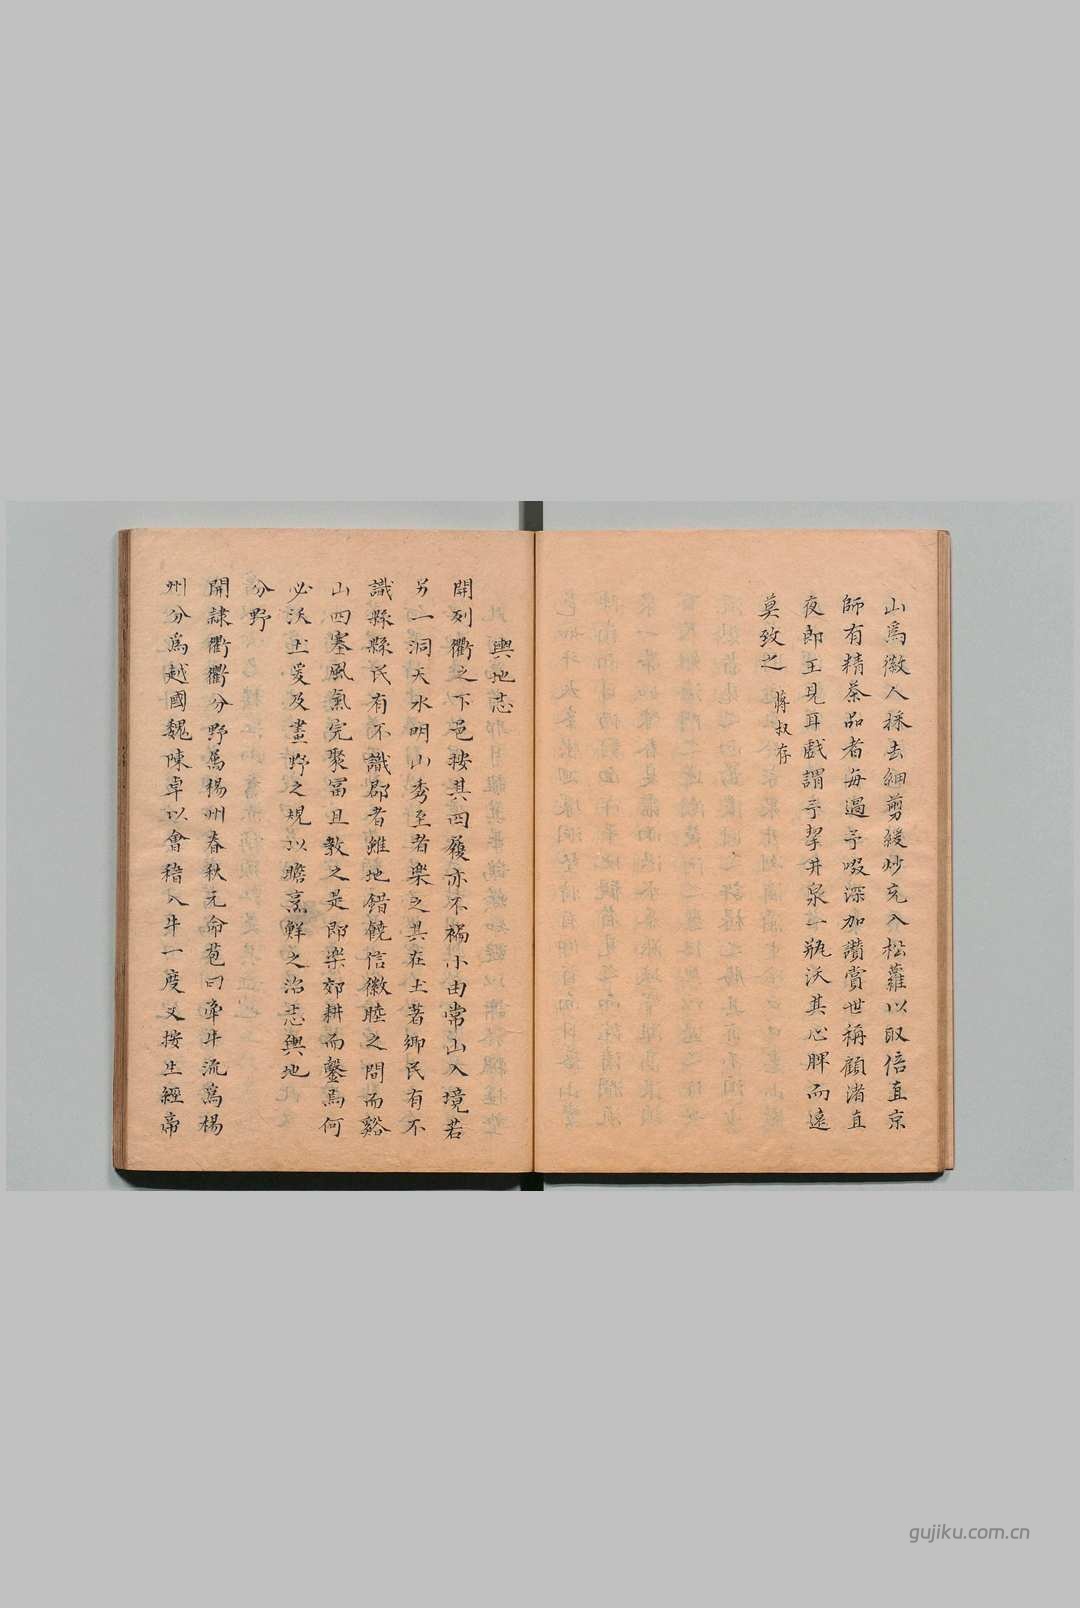 山爲徽人採去細剪緩炒充入松蘿以取倍直京
師有精茶品者每過予啜深加讚賞世稱顧渚直
夜郎王見耳戲謂予挈井泉一瓶沃其心脾而遠
莫致之 蔣叔存
輿地志
開列衢之下邑按其四履亦不褊小由常山入境若
另一洞天水明山秀至者樂之其在土著鄉民有不
識縣縣民有不識郡者雖地錯饒信徽睦之間而谿
山四塞風氣完聚富且教之是即樂郊耕而鑿焉何
必沃土爰及畫野之規以瞻烹鮮之治志輿地
分野
開隷衢衢分野爲楊州春秋元命苞曰牽牛流爲楊
州分爲越國魏陳卓以會稽入牛一度又按生經帝
gujiku.com.cn